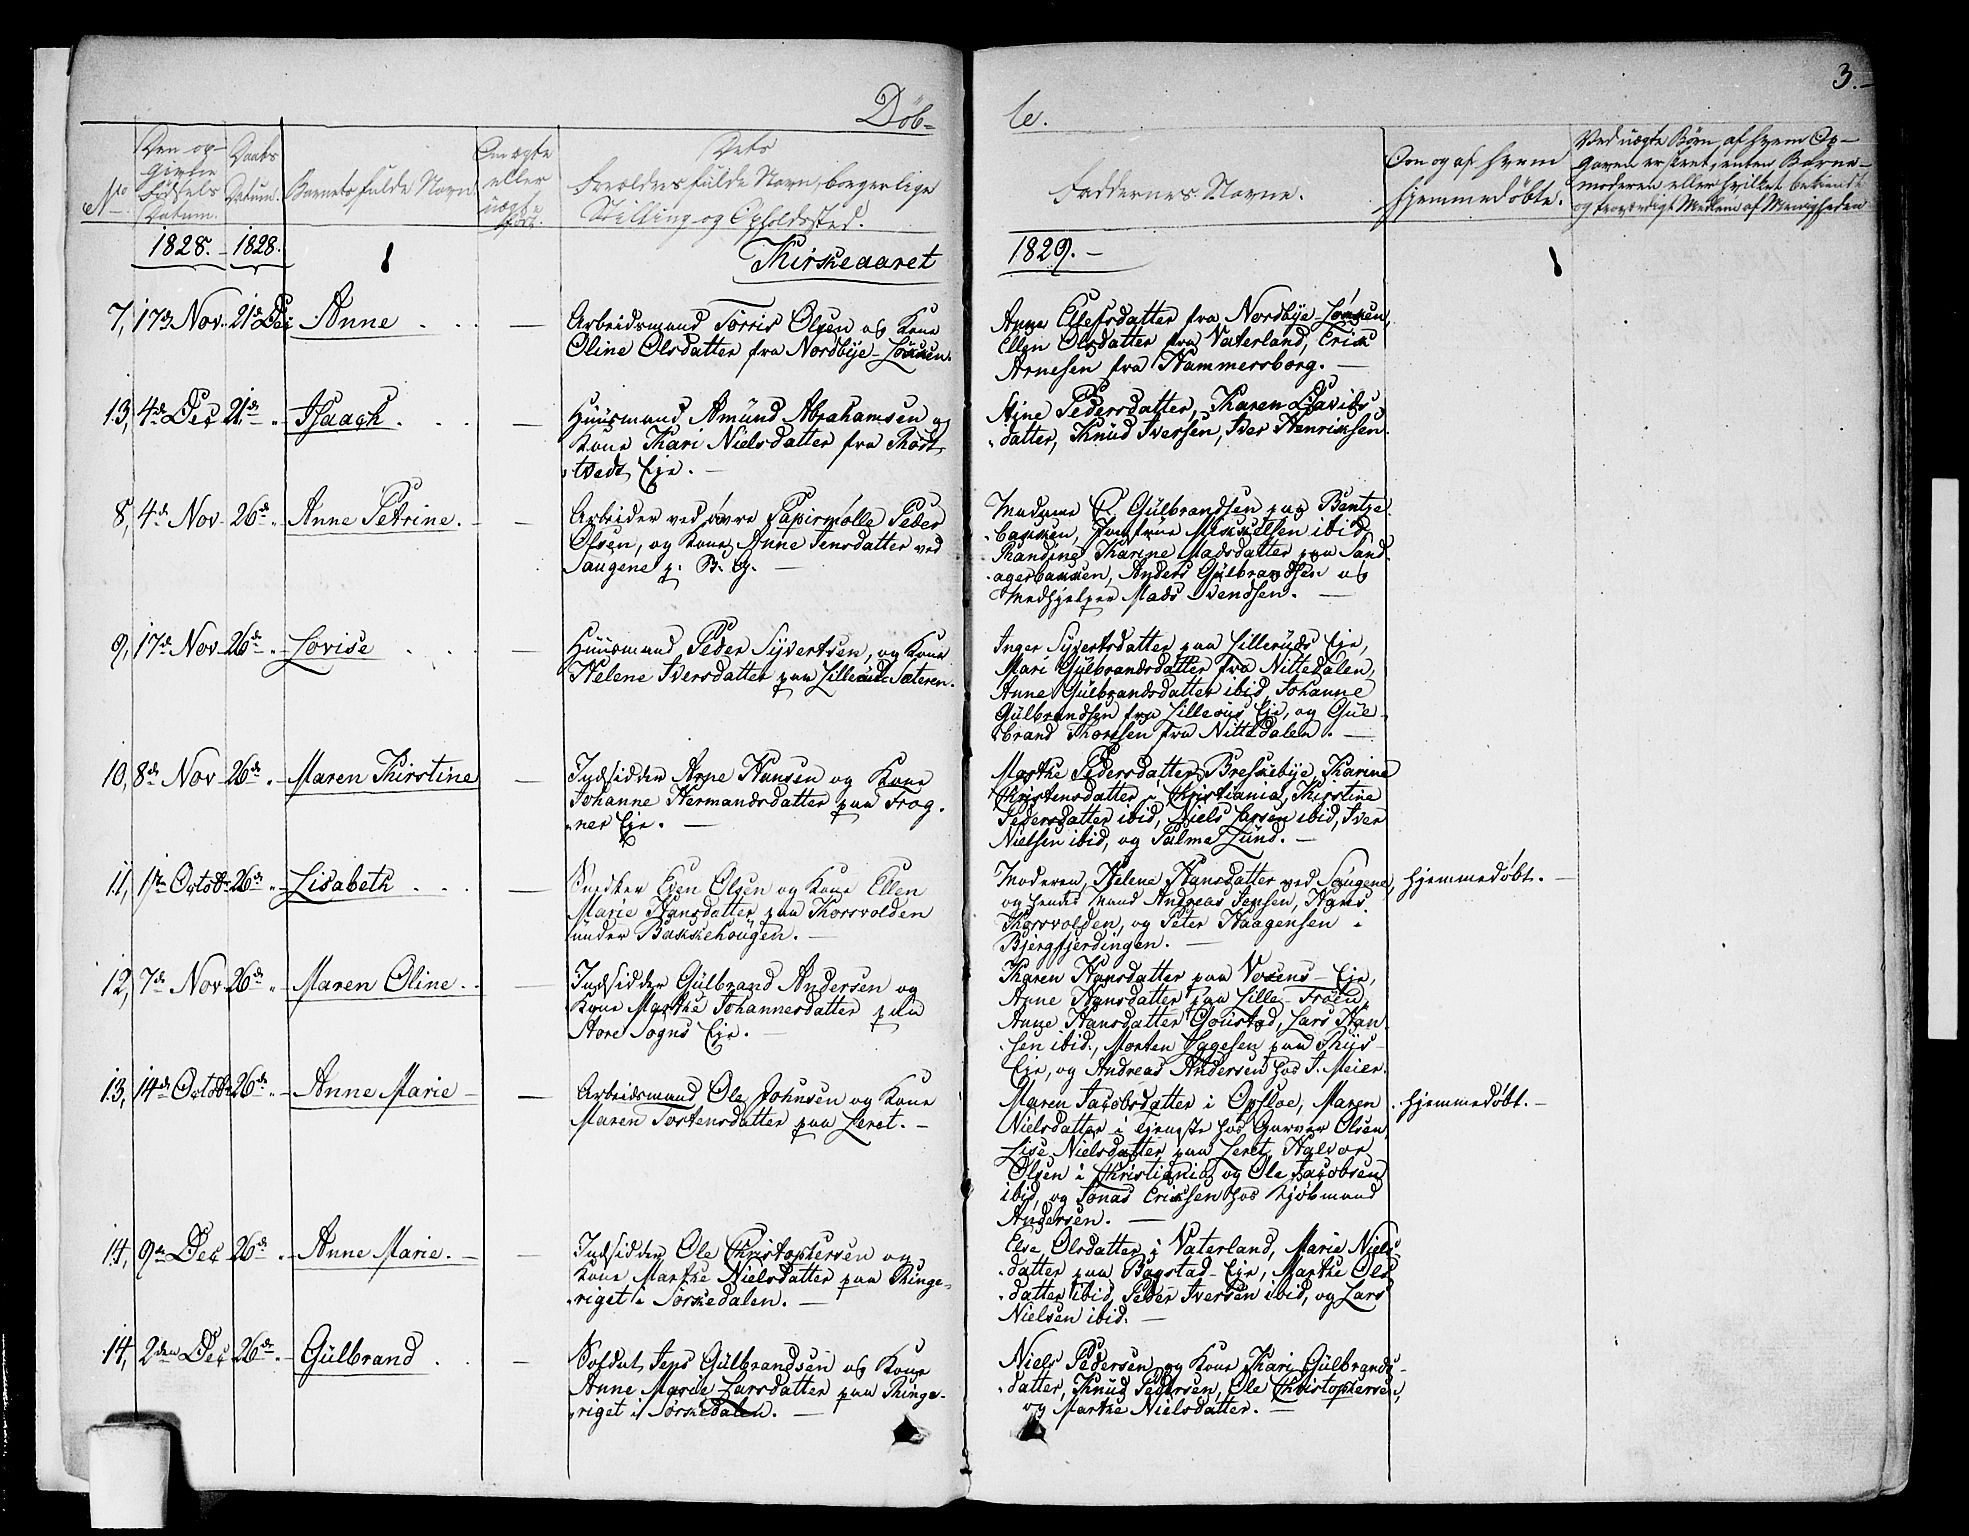 Døb-
te.
3.-
No
Den op-
givne
Fødsels
Datum.
Daabs
Datum.
Barnets fulde Navn
Om ægte
eller
uægte
Dets
Forældres fulde Navn, borgerlige
Stilling og Opholdssted.
Faddernes Navne.
Om og af hvem
hjemmedøbte.
Ved uægte Børn, af hvem Op-
gaven er skeet, enten Barne-
moderen eller hvilket bekiendt
og troværdigt Medlem af Menigheden
1828.- 1828. Kirkeaaret
1829.-
7, 17de Nov. 21de Dec Anne . . . — Arbeidsmand Torris Olsen og Kone
Oline Olsdatter fra Nordbye-Løkken.
Anne Ellefsdatter fra Nordbye-Løkken,
Ellen Olsdatter fra Vaterland, Erik
Arnesen fra Hammersborg. —
13, 4de Dec 21de „ Isaach . . . — Huusmand Amund Abrahamsen og
Kone Kari Nielsdatter fra Rødt-
tvedt Eje. —
Stine Pedersdatter, Karen Davids
datter, Knud Iversen, Iver Henriksen.
8, 4de Nov 26de „ Anne Petrine. — — Arbeider ved øvre Papirmølle Peder
Olsen, og Kone Anne Jensdatter ved
Saugene p. B. G. —
Madame P. Gulbrandsen paa Bentze
bakken, Jomfrue Mikkelsen ibid,
Randine Karine Madsdatter paa Sand
agerbakken, Anders Gulbrandsen og
Medhjelper Mads Svendsen. —
9, 17de Nov 26de „ Lovise . . . — Huusmand Peder Syvertsen, og Kone
Helene Iversdatter paa Lillerud-Sæteren.
Inger Syvertsdatter paa Lilleruds Eje,
Mari Gulbrandsdatter fra Nittedalen,
Anne Gulbrandsdatter ibid, Johanne
Gulbrandsen fra Lilleruds Eje, og Gul-
brand Thoresen fra Nittedalen. —
10, 8de Nov 26de „ Maren Kirstine — Indsidder Arne Hansen og Kone
Johanne Hermandsdatter paa Frog-
ner Eje. —
Marthe Pedersdatter Breskebye, Karine
Christensdatter i Christiania, Kirstine
Pedersdatter ibid, Niels Larsen ibid, Iver
Nielsen ibid, og Palma Lund. —
11, 1ste Octobr 26de „ Lisabeth . . . — Snedker Even Olsen og Kone Ellen
Marie Hansdatter paa Thorsvolden
under Bakkehougen. —
Moderen, Helene Hansdatter ved Saugene,
og hendes Mand Andreas Jensen, Hans
Thorsvolden, og Peter Haagensen i
Bjergfjerdingen. —
hjemmedøbt. —
12, 7de Nov 26de „ Maren Oline. . — Indsidder Gulbrand Andersen og
Kone Marthe Johannesdatter paa
Store Sogns Eje. —
Karen Hansdatter paa Voxens-Eje,
Anne Hansdatter paa Lille-Frøen,
Anne Hansdatter Goustad, Lars Han-
sen ibid., Morten Aagesen paa Ruus-
Eje, og Andreas Andersen hos J. Meier.
13, 14de Octobr 26de „ Anne Marie — — Arbeidsmand Ole Johnsen og Kone
Maren Tostensdatter paa Leret. —
Maren Jacobsdatter i Opsloe, Maren
Nielsdatter i tjeneste hos Garver Olsen,
Lise Nielsdatter paa Leret, Halvor
Olsen i Christiania, og Ole Jacobsen
ibid, og Jonas Eriksen hos Kjøbmand
Andersen. —
hjemmedøbt. —
14, 9de Dec 26de „ Anne Marie. — — Indsidder Ole Christophersen og
Kone Marthe Nielsdatter paa Ringe-
riget i Sørkedalen. —
Else Olsdatter i Vaterland, Marie Niels
datter paa Bogstad-Eje, Marthe Ols
datter ibid, Peder Iversen ibid, og Lars
Nielsen ibid. —
14, 2den Dec 26de „ Gulbrand . . — Soldat Jens Gulbrandsen og Kone
Anne Marie Larsdatter paa Ringe-
riget i Sørkedalen. —
Niels Pedersen og Kone Kari Gulbrands-
datter, Knud Pedersen, Ole Christophersen,
og Marthe Nielsdatter. —